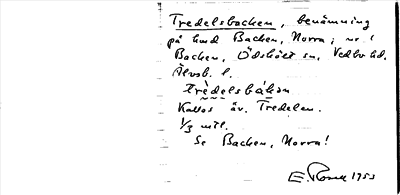 Tredelsbacken, benämning
på hmd Backen, Norra; nr 1
Backen, Ödskölt sn, Vedbo hd.
Älvsb. l.
trèdelsbákan
Kallas äv. Tredelen.
1/3 mtl.
Se Backen, Norra!
E. 1953